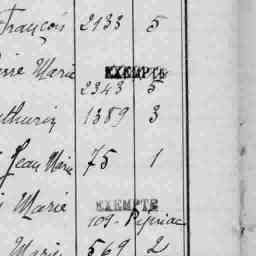 François 2133 5
Marie EXEMPTÉ
2343 5
1389 3
Jean Marie 75 1
Marie EXEMPTÉ
109 - Pipriac
Marie 569 2